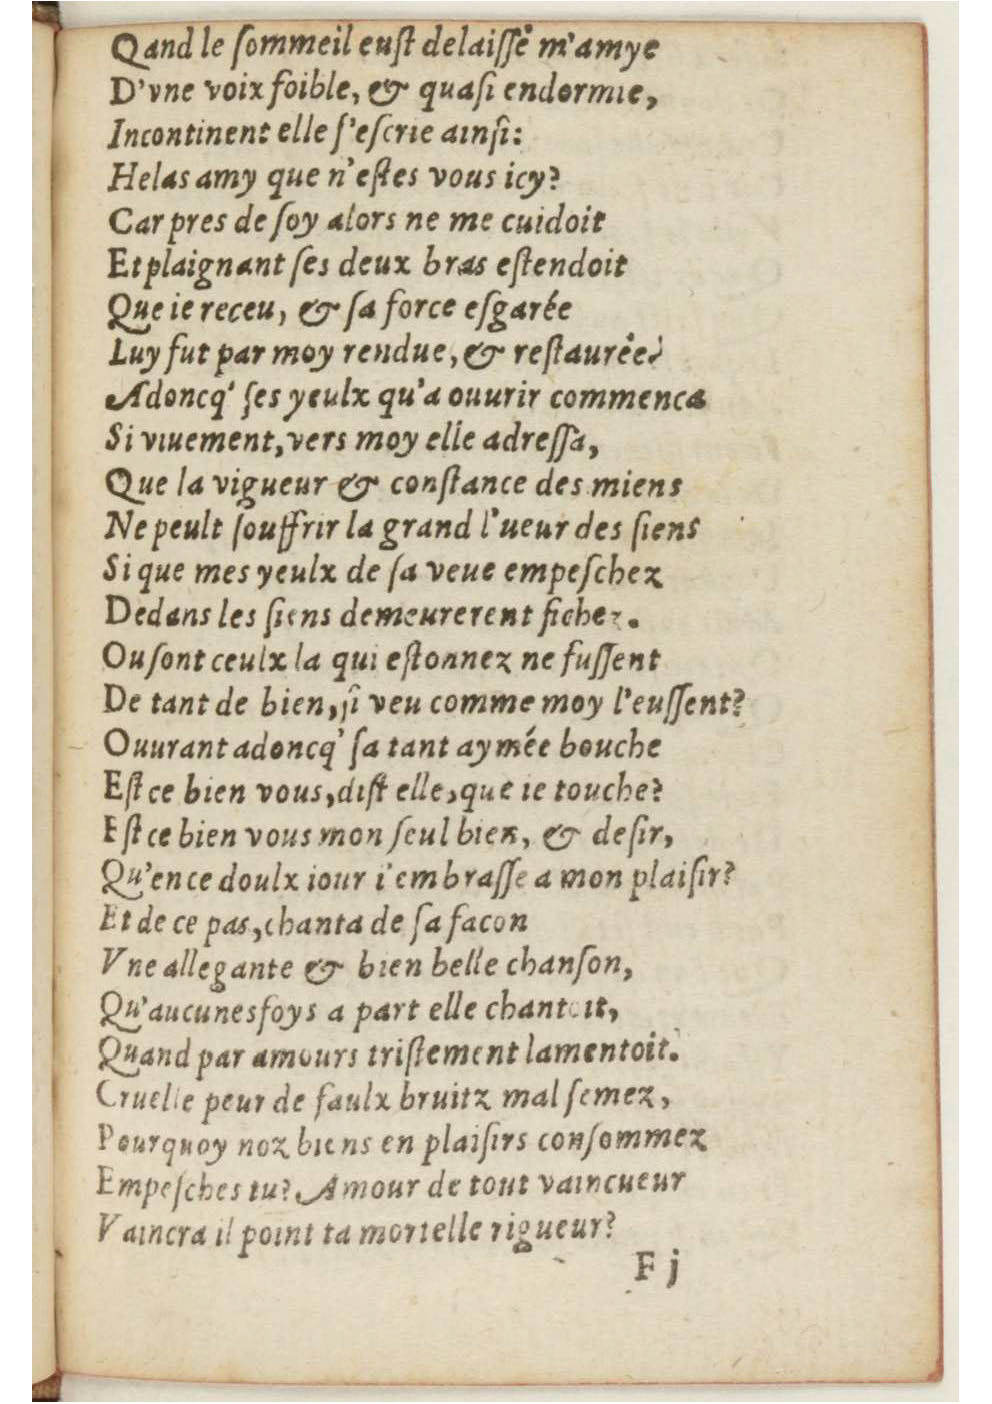 Qand le ſommeil euſt delaiſſé m'amye
D'vne voix foible, & quaſi endormie,
Incontinent elle ſ'eſcrie ainſi:
Helas amy que n'eſtes vous icy?
Car pres de ſoy alors ne me cuidoit
Et plaignant ſes deux bras eſtendoit
Que ie receu, & ſa force eſgarée
Luy fut par moy rendue, & reſtaurée?
Adoncq' ſes yeulx qu'a ouurir commenca
Si viuement, vers moy elle adreſſa,
Que la vigueur & conſtance des miens
Ne peult ſouffrir la grand l'ueur des ſiens
Si que mes yeulx de ſa veue empeſchez
Dedans les ſiens demeurerent fichez.
Ou ſont ceulx la qui eſtonnez ne fuſſent
De tant de bien, ſi veu comme moy l'euſſent?
Ouurant adoncq' ſa tant aymée bouche
Eſt ce bien vous, diſt elle, que ie touche?
Eſt ce bien vous mon ſeul bien, & deſir,
Qu'en ce doulx iour i'embraſſe a mon plaiſir?
Et de ce pas, chanta de ſa facon
Vne allegante & bien belle chanſon,
Qu'aucunesfoys a part elle chantoit,
Quand par amours triſtement lamentoit.
Cruelle peur de faulx bruitz mal ſemez,
Pourquoy noz biens en plaiſirs conſommez
Empeſches tu? Amour de tout vaincueur
Vaincra il point ta mortelle rigueur?
F j